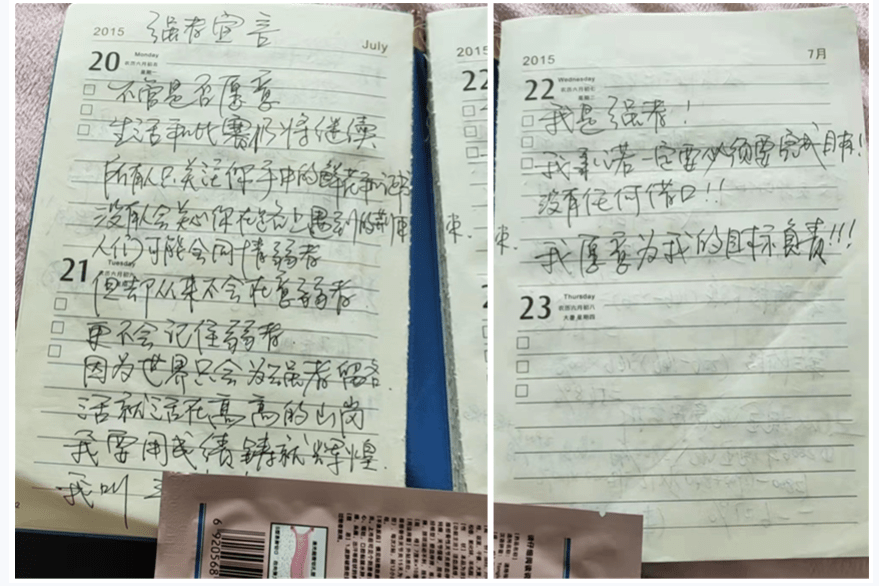 强者宣言
2015
July
20
Monday
农历六月初五
星期一
不管是否愿意
生活和比赛仍将继续
所有人只关注你手中的鲜花和
没有人会关心你在路上遇到的
人们可能会同情弱者
21
Tuesday
农历六月初六
但却从来不会在意弱者
更不会记住弱者.
因为世界只会为强者留名.
活就活在高高的山岗
我要用成绩铸就辉煌.
我叫
6 920568
2015
22
2015
7月
22
Wednesday
农历六月初七
星期三
我是强者!
我承诺一定要必须要完成目标!
没有任何借口!!
我愿意为我的目标负责!!!
23
Thursday
农历六月初八
大暑 星期四